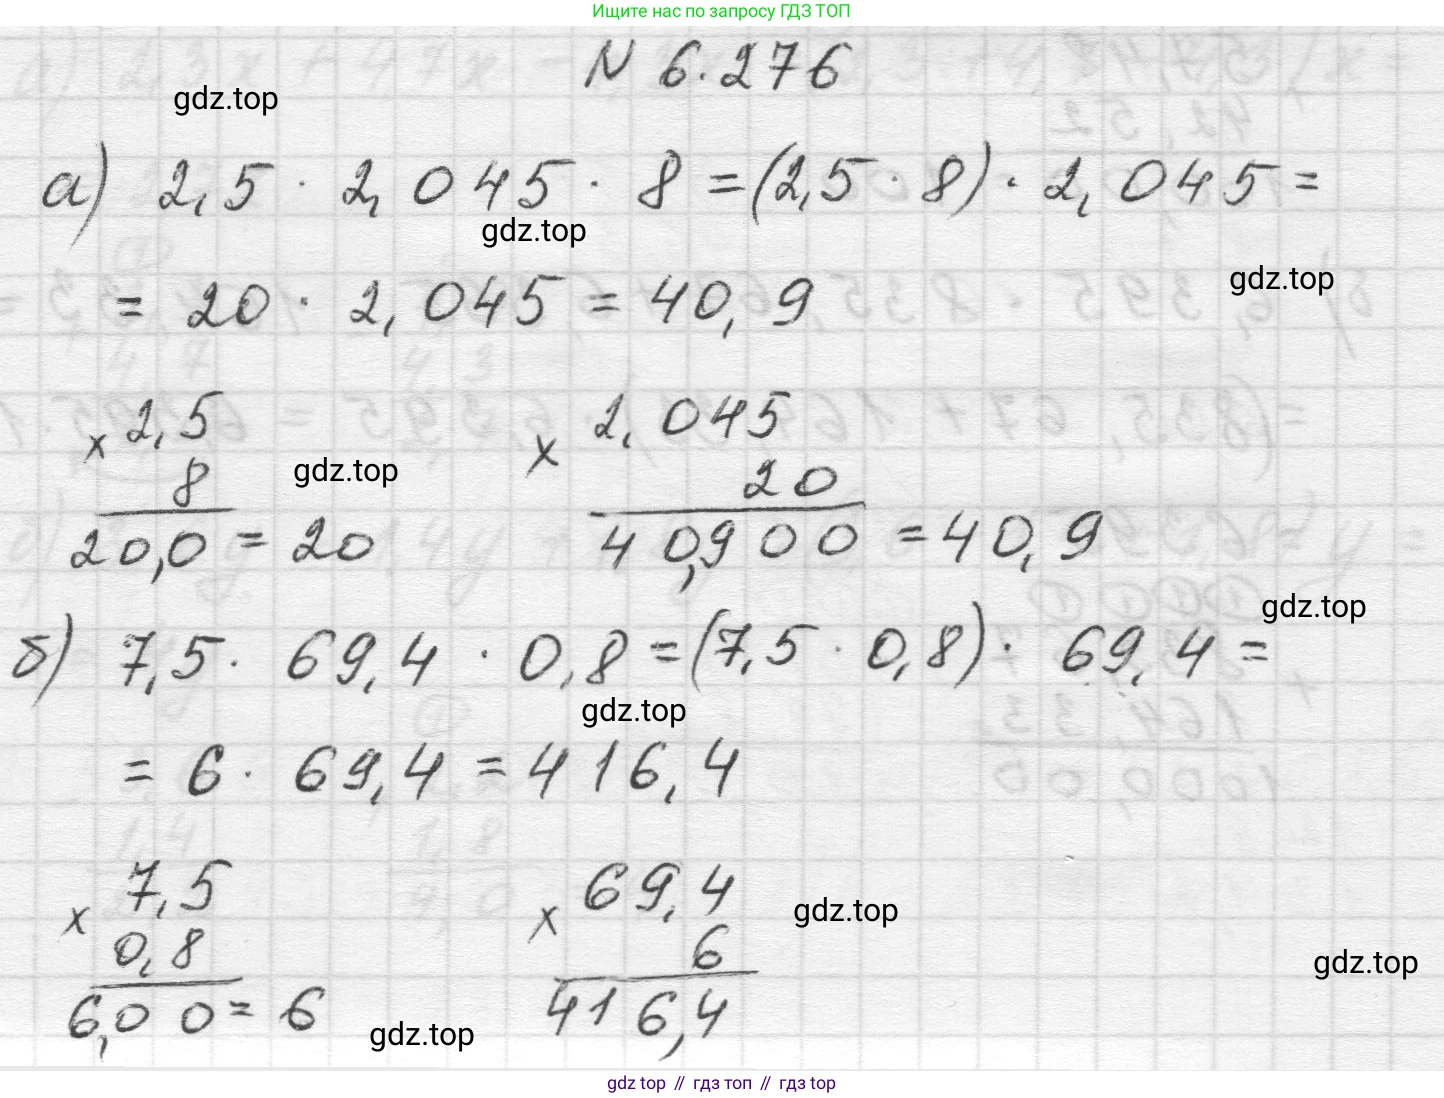 Ищите нас по запросу ГДЗ ТОП
N 6.276
gdz.top
а) 2,5 · 2,045 · 8 = (2,5 · 8) · 2,045 =
gdz.top
gdz.top
= 20 · 2,045 = 40,9
× 2,5
8
20,0 = 20
gdz.top
× 2,045
20
40,900 = 40,9
gdz.top
б) 7,5 · 69,4 · 0,8 = (7,5 · 0,8) · 69,4 =
gdz.top
= 6 · 69,4 = 416,4
× 7,5
0,8
6,00 = 6
gdz.top
× 69,4
6
416,4
gdz.top
gdz.top
gdz top // гдз топ // гдз top